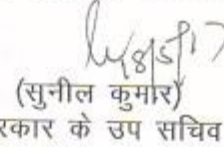 (सुनील कुमार)
रकार के उप सचिव